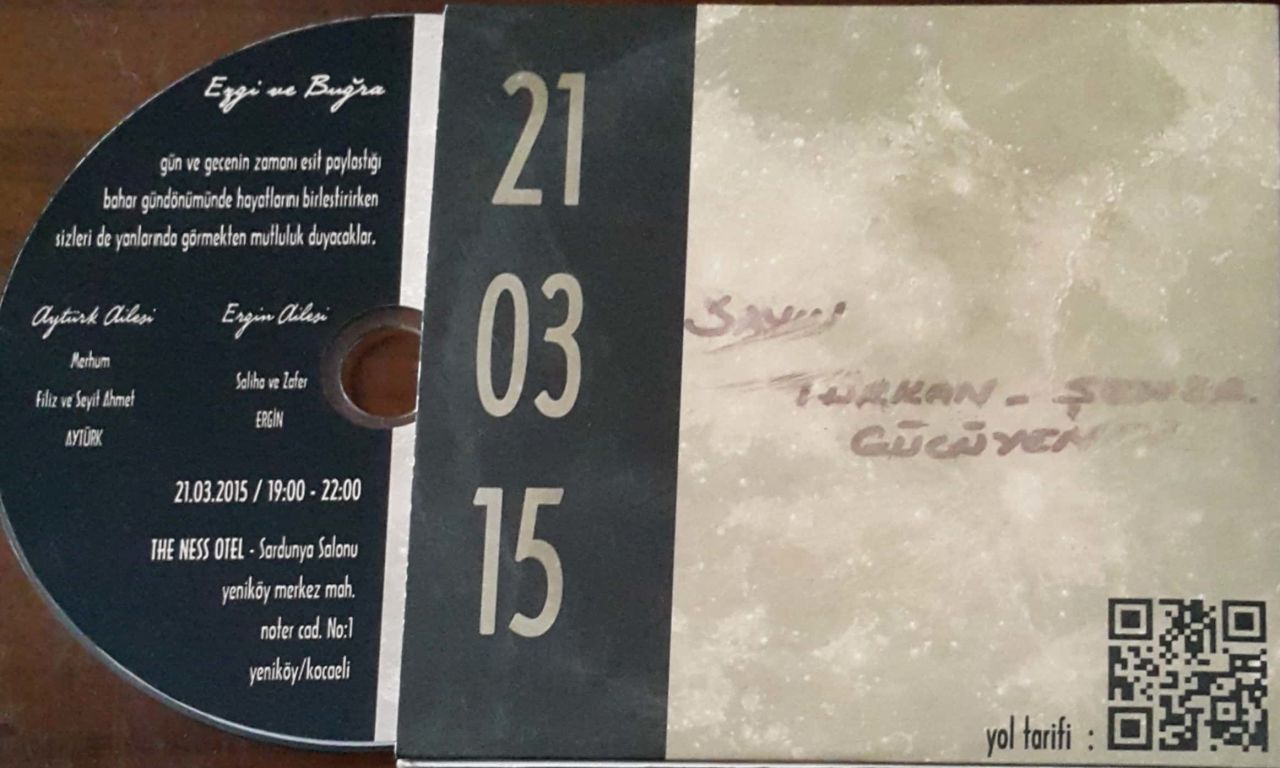 Ezgi ve Buğra
gün ve gecenin zamanı esit paylastığı
bahar gündönümünde hayatlarını birlestirirken
sizleri de yanlarında görmekten mutluluk duyacaklar.
Aytürk Ailesi
Merhum
Filiz ve Seyit Ahmet
AYTÜRK
Ergin Ailesi
Saliha ve Zafer
ERGİN
21.03.2015 / 19:00 - 22:00
THE NESS OTEL - Sardunya Salonu
yeniköy merkez mah.
noter cad. No:1
yeniköy/kocaeli
21
03
15
SAYIN
TÜRKAN -
yol tarifi :